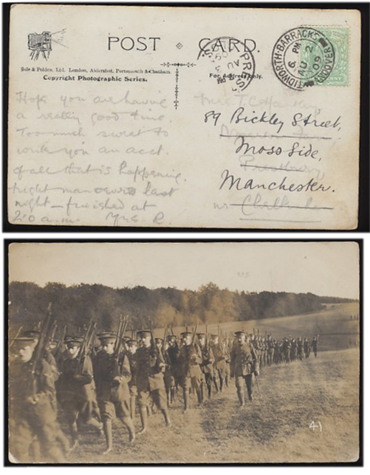 POST CARD.
Gale & Polden, Ltd. London, Aldershot, Portsmouth & Chatham.
Copyright Photographic Series.
For Address only.
TIDWORTH-BARRACKS
6 PM
AU 2
09
ANDOVER
Hope you are having
a really good time.
Too much sweat to
write you an acct.
of all that is happening.
night manoeuvres last
night – finished at
2.0 a.m. Yrs R.
89 Bickley Street,
Moss Side,
Manchester.
nr Cheltenham
41